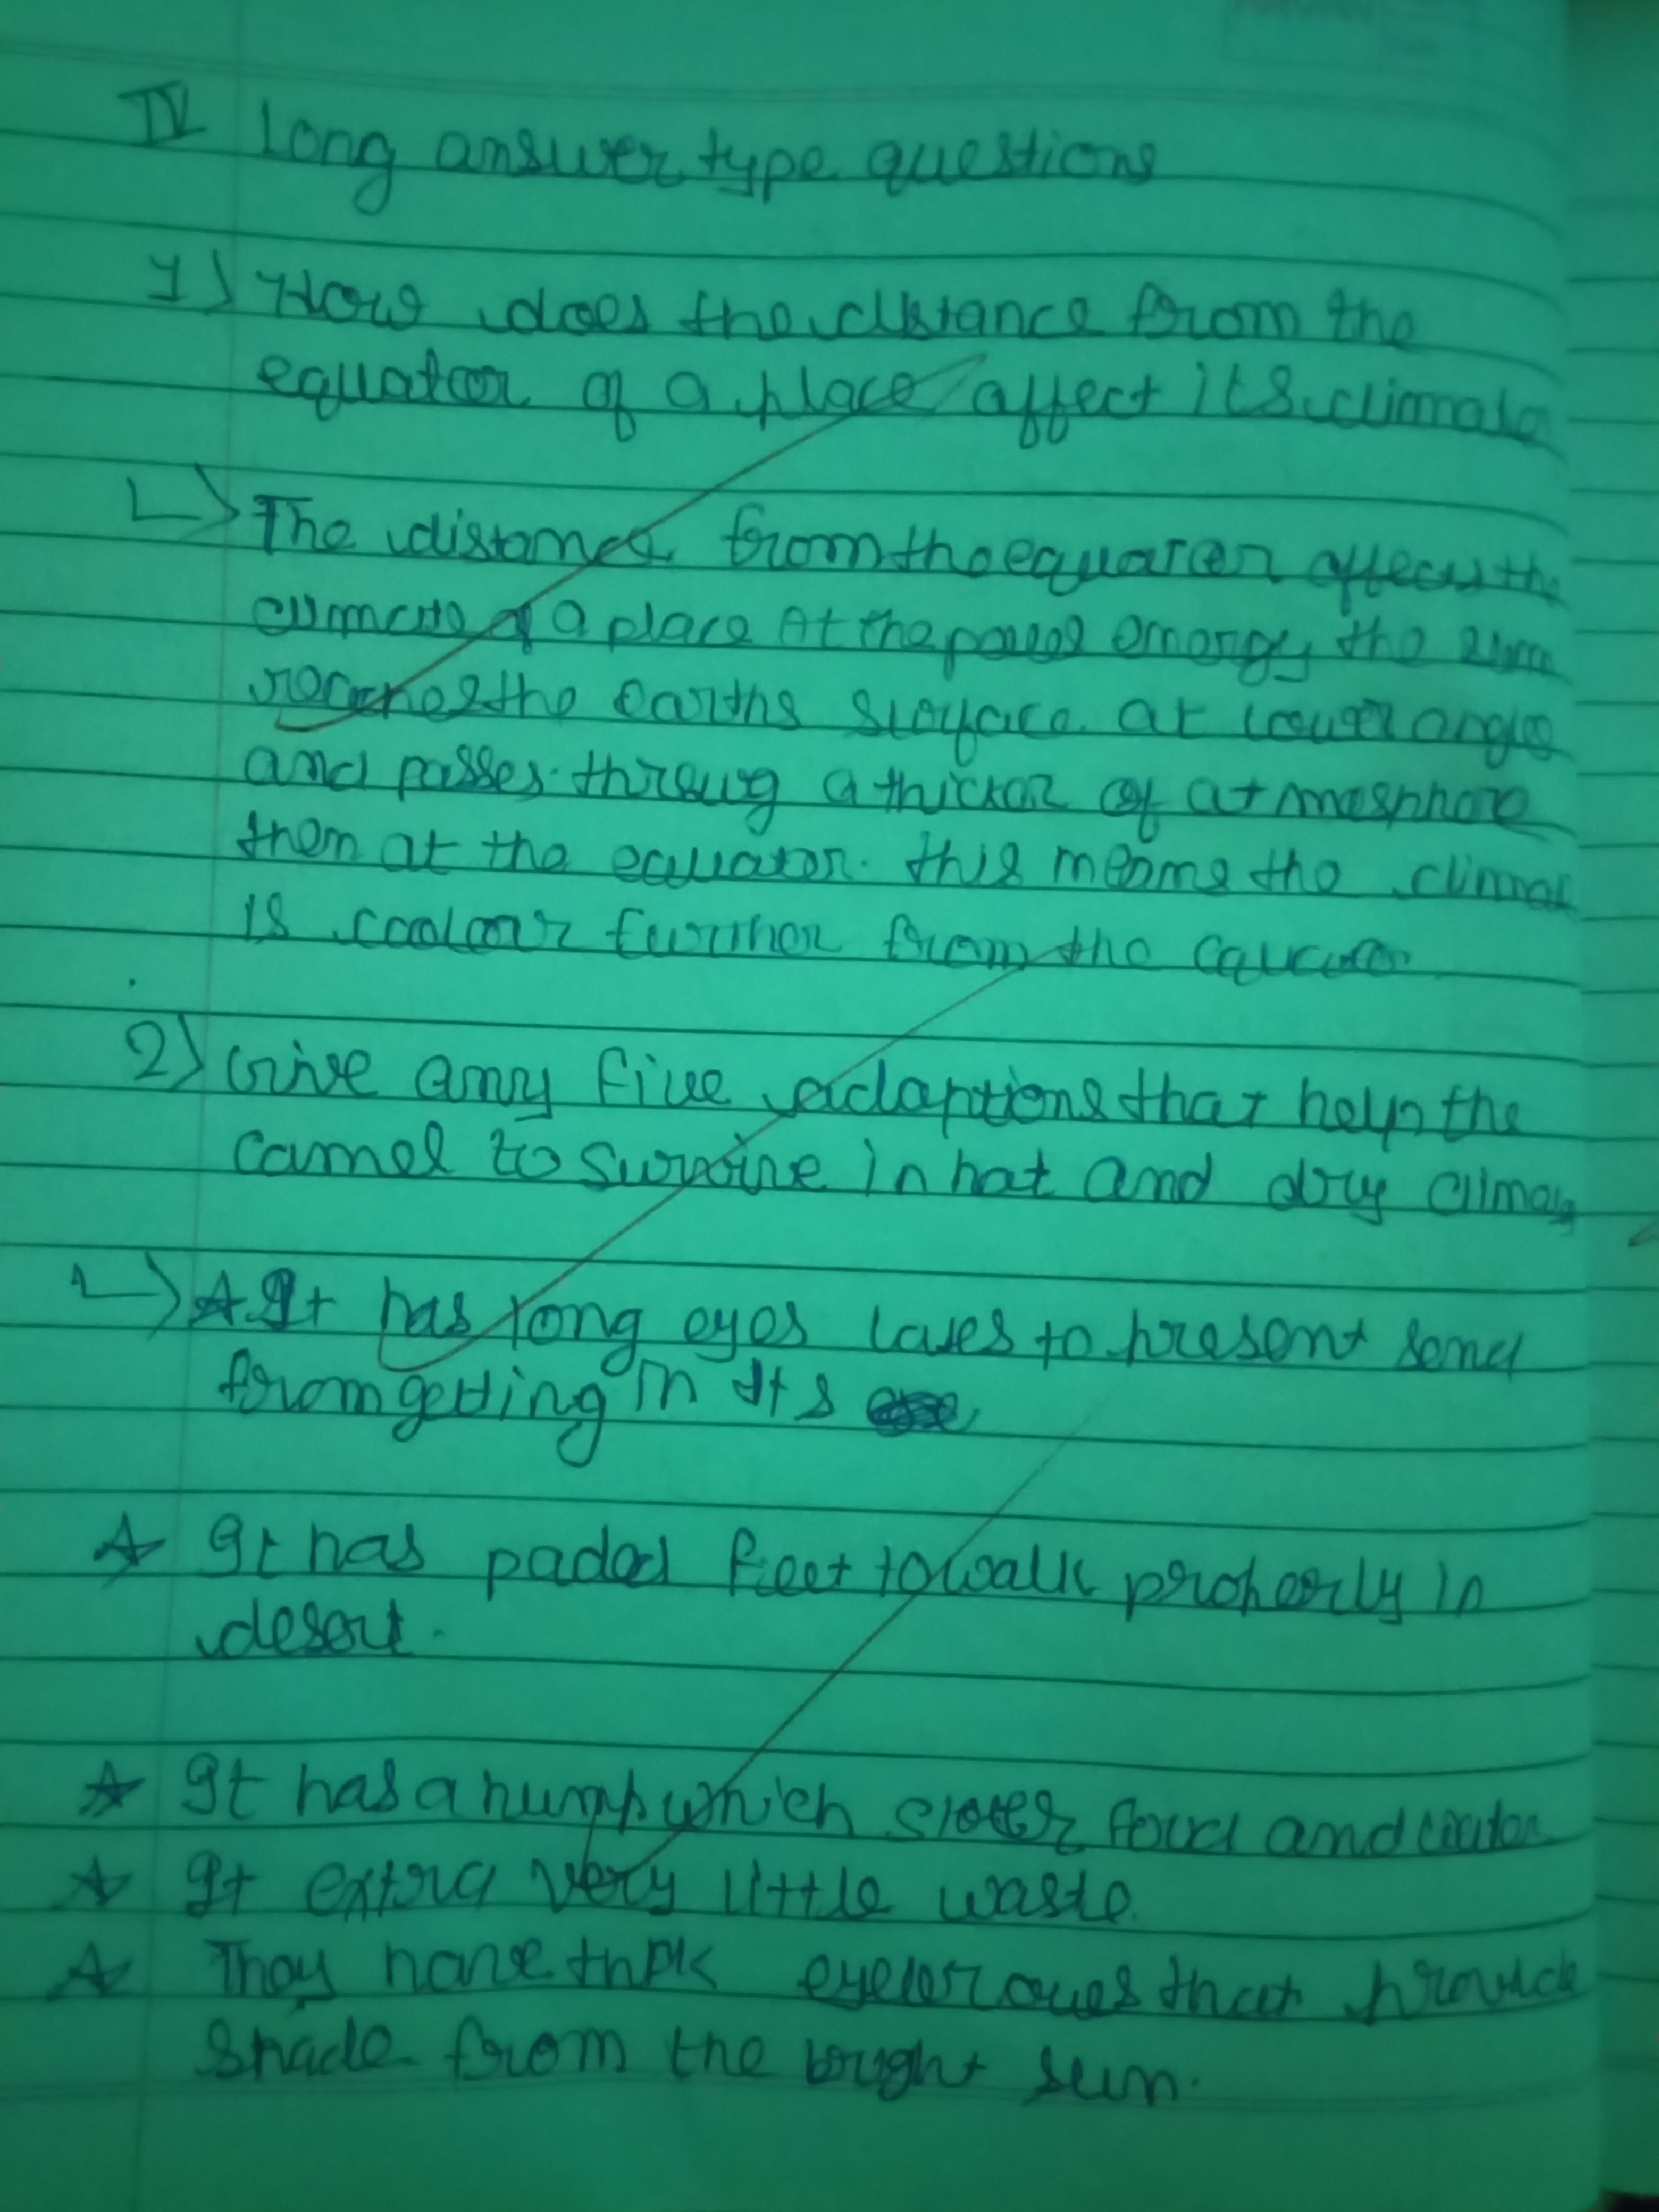 IV Long answer type questions
1) How does the distance from the
equator of a place affect its climate
↳ The distance from the equator affects the
climate of a place At the poles energy the sun
reaches the earths surface at lower angles
and passes throug a thicker of atmosphore
then at the equator. this means the climat
is coolour further from the
2) Give any five adaptions that help the
camel to survive in hot and dry climate
↳ ☆ It has long eyes lases to present send
from getting in its
☆ It has paded feet to walk properly in
desert.
☆ It has a hump which stoter food and water
☆ It extra very little waste.
☆ They have thik eyebroues that provide
shade from the bright sun.